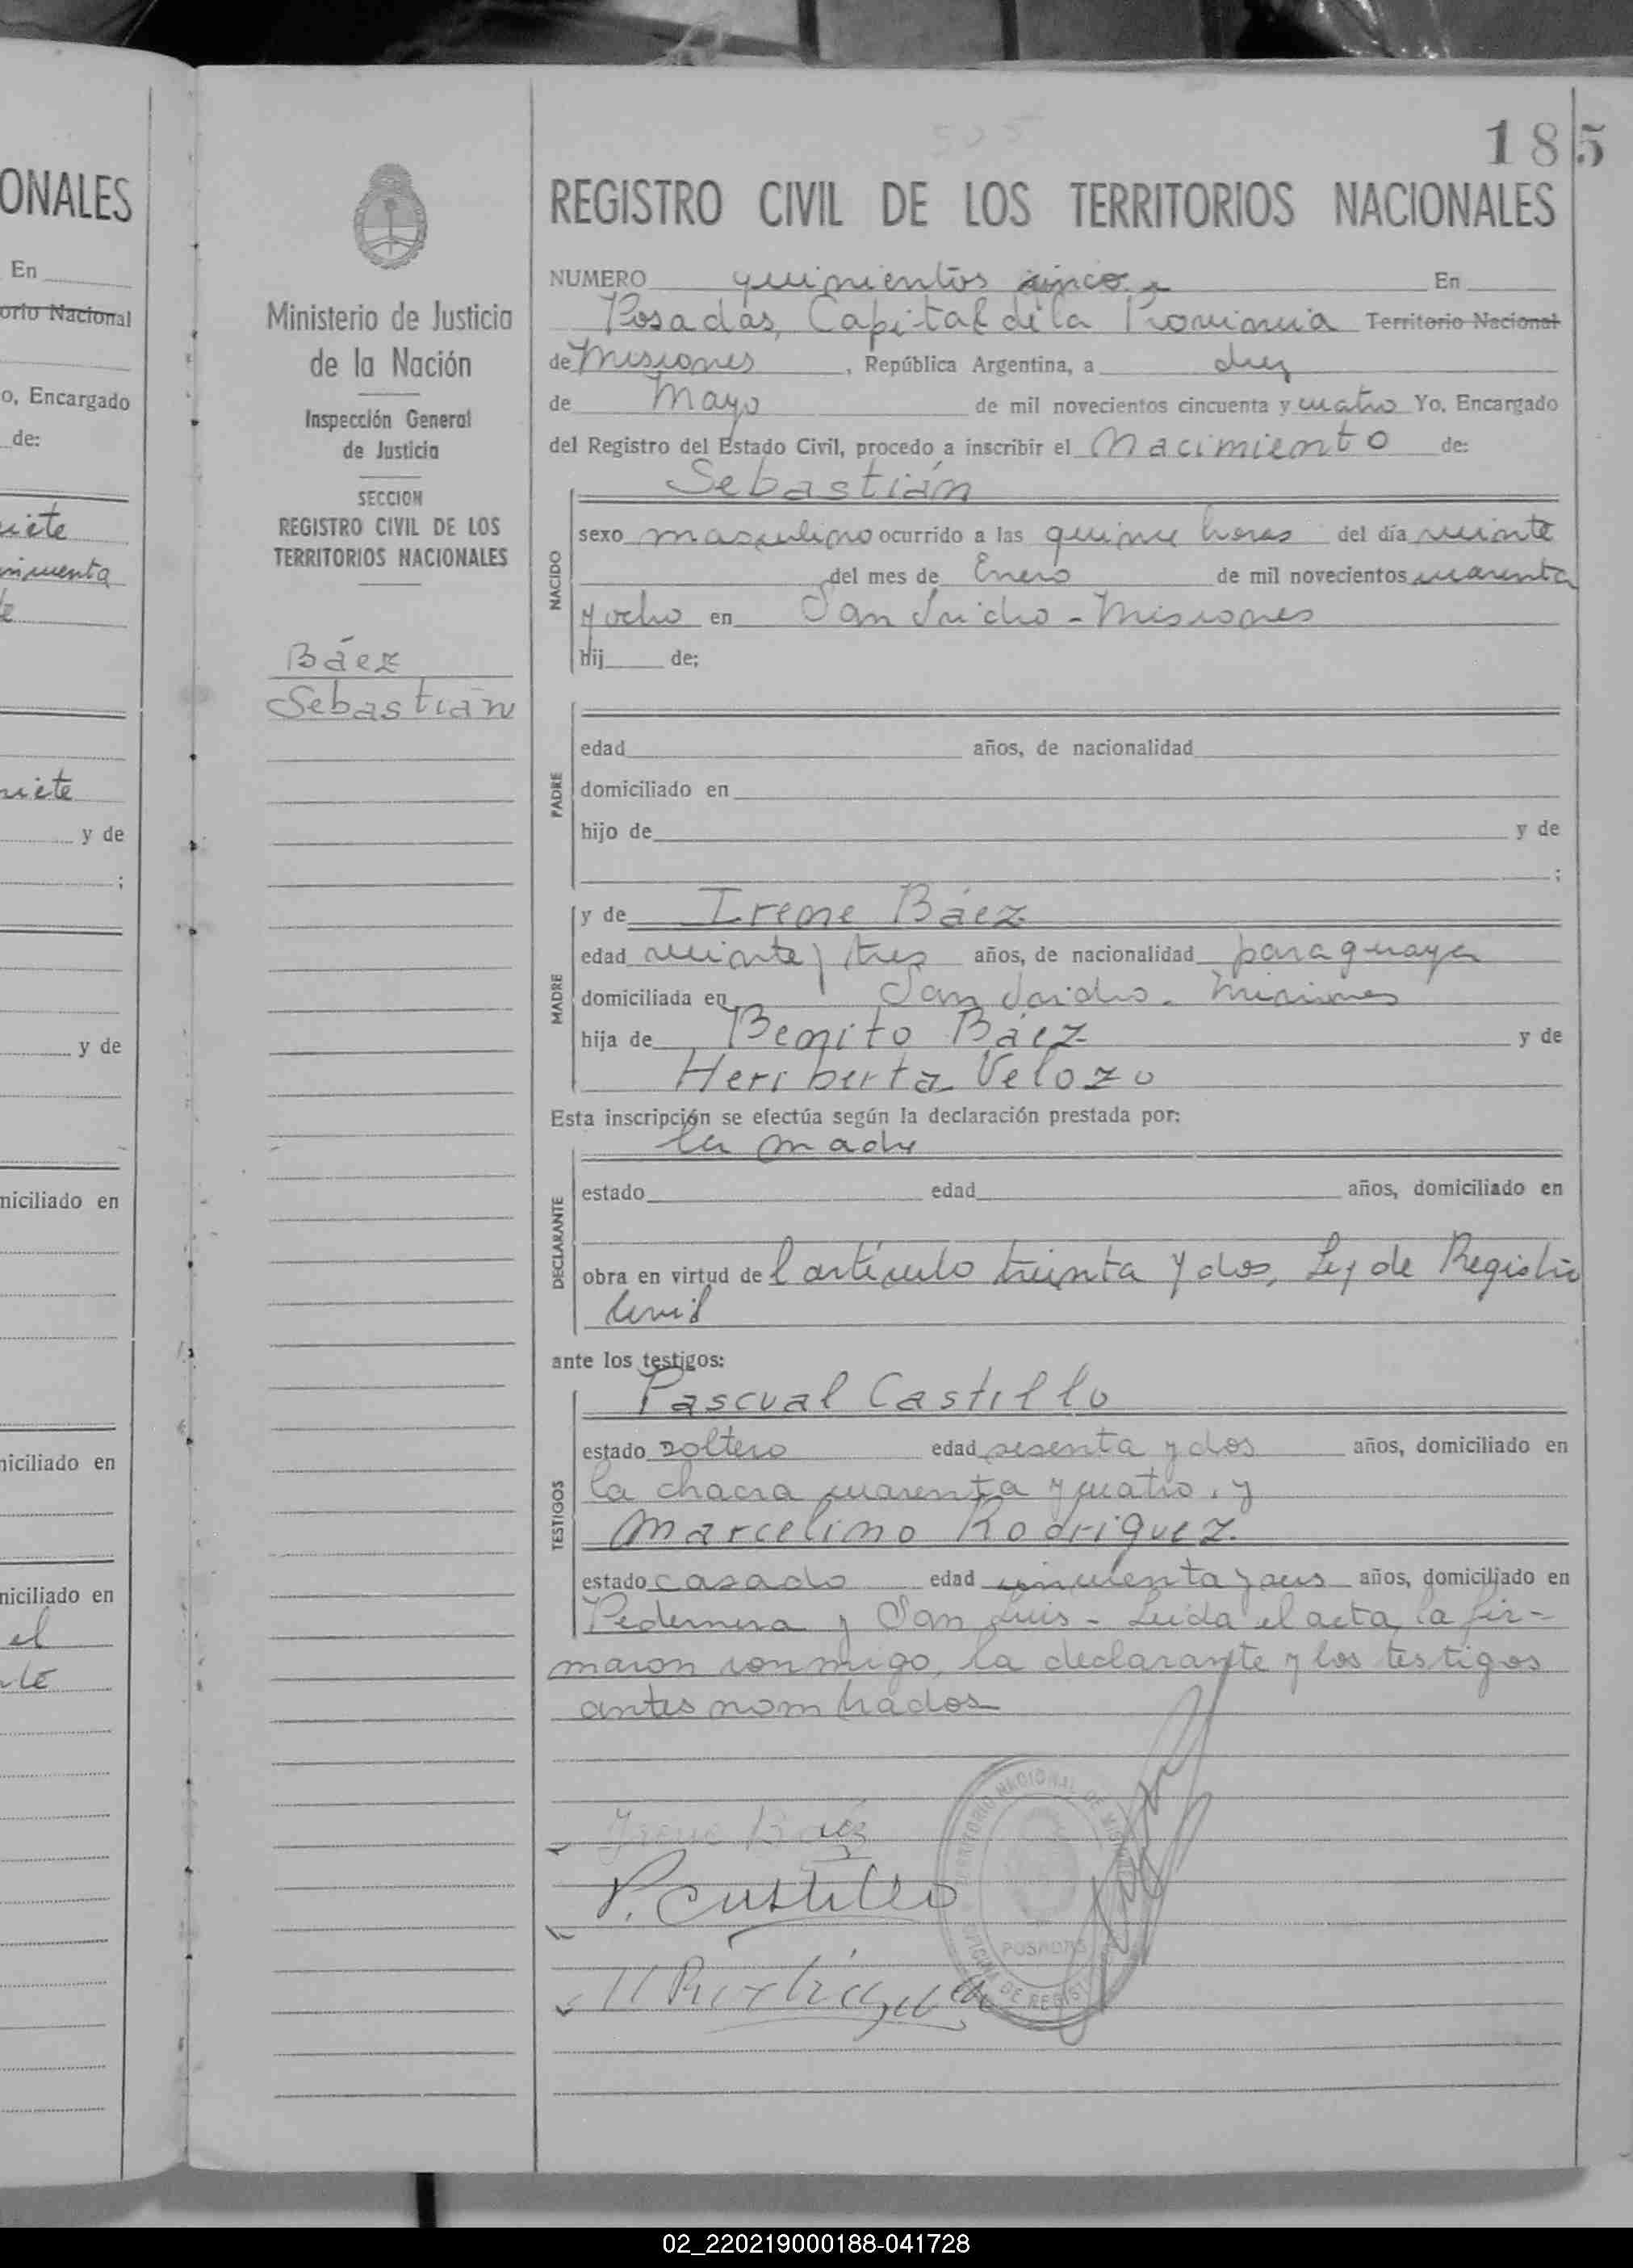 185
505
REGISTRO CIVIL DE LOS TERRITORIOS NACIONALES
NUMERO quinientos cinco En
Posadas, Capital de la Provincia Territorio Nacional
de Misiones, República Argentina, a diez
de Mayo de mil novecientos cincuenta y cuatro Yo, Encargado
del Registro del Estado Civil, procedo a inscribir el Nacimiento de:
Sebastián
NACIDO
sexo masculino ocurrido a las quince horas del día veinte
del mes de Enero de mil novecientos cuarenta
y ocho en San Isidro - Misiones
Hij de;
PADRE
edad años, de nacionalidad
domiciliado en
hijo de y de
;
MADRE
y de Irene Báez
edad veinte y tres años, de nacionalidad paraguaya
domiciliada en San Isidro - Misiones
hija de Benito Báez y de
Heriberta Velozo
Esta inscripción se efectúa según la declaración prestada por:
la madre
DECLARANTE
estado edad años, domiciliado en
obra en virtud del artículo treinta y dos, Ley de Registro
Civil
ante los testigos:
Pascual Castillo
TESTIGOS
estado soltero edad sesenta y dos años, domiciliado en
la chacra cuarenta y cuatro, y
Marcelino Rodriguez
estado casado edad cincuenta y años, domiciliado en
Pedernera y San Luis - Leida el acta, la fir-
maron conmigo, la declarante y los testigos
antes nombrados
Irene Báez
P. Castillo
TERRITORIO NACIONAL DE MISIONES
POSADAS
OFICINA DE REGIST
Ministerio de Justicia
de la Nación
Inspección General
de Justicia
SECCION
REGISTRO CIVIL DE LOS
TERRITORIOS NACIONALES
Báez
Sebastián
ONALES
En
orio Nacional
o, Encargado
de:
y de
;
y de
niciliado en
niciliado en
niciliado en
el
02_220219000188-041728